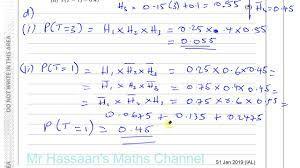 d)
H₃ = 0.15(3)+0.1 = 0.55
(i) P(T=3) = H₁ × H₂ × H₃ = 0.25 × 0.4 × 0.55
= 0.055
(ii) P(T=1) = H₁ × H̅₂ × H̅₃ = 0.25 × 0.6 × 0.45
= H̅₁ × H₂ × H̅₃ = 0.75 × 0.4 × 0.45
= H̅₁ × H̅₂ × H₃ = 0.75 × 0.6 × 0.55
0.0675 + 0.135 + 0.2475
P(T=1) = 0.45
DO NOT WRITE IN THIS AREA
S1 Jan 2019 (IAL)
Mr Hassaan's Maths Channel